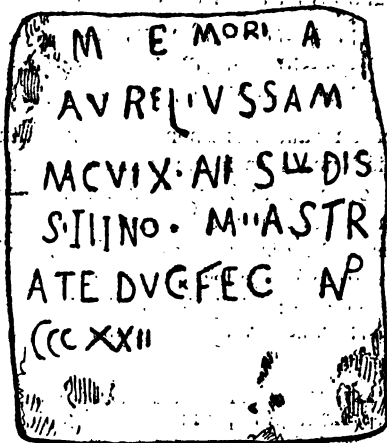 M E MORI A
AVRELIVSSAM
MCVIX·AII SLVDIS
S·IIINO· MIIASTR
ATE DVC·FEC· AP
CCCXXII